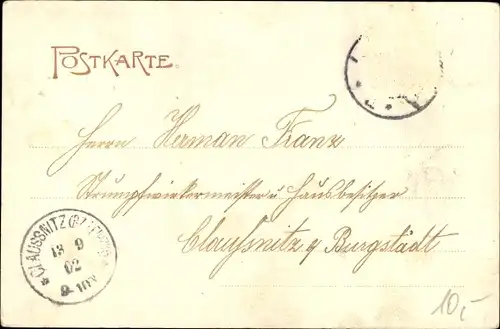 POSTKARTE.
Herrn Herman Franz
Strumpfwirkermeister u Hausbesitzer
Claußnitz y Burgstädt
CLAUSSNITZ
13 9
02
10,-